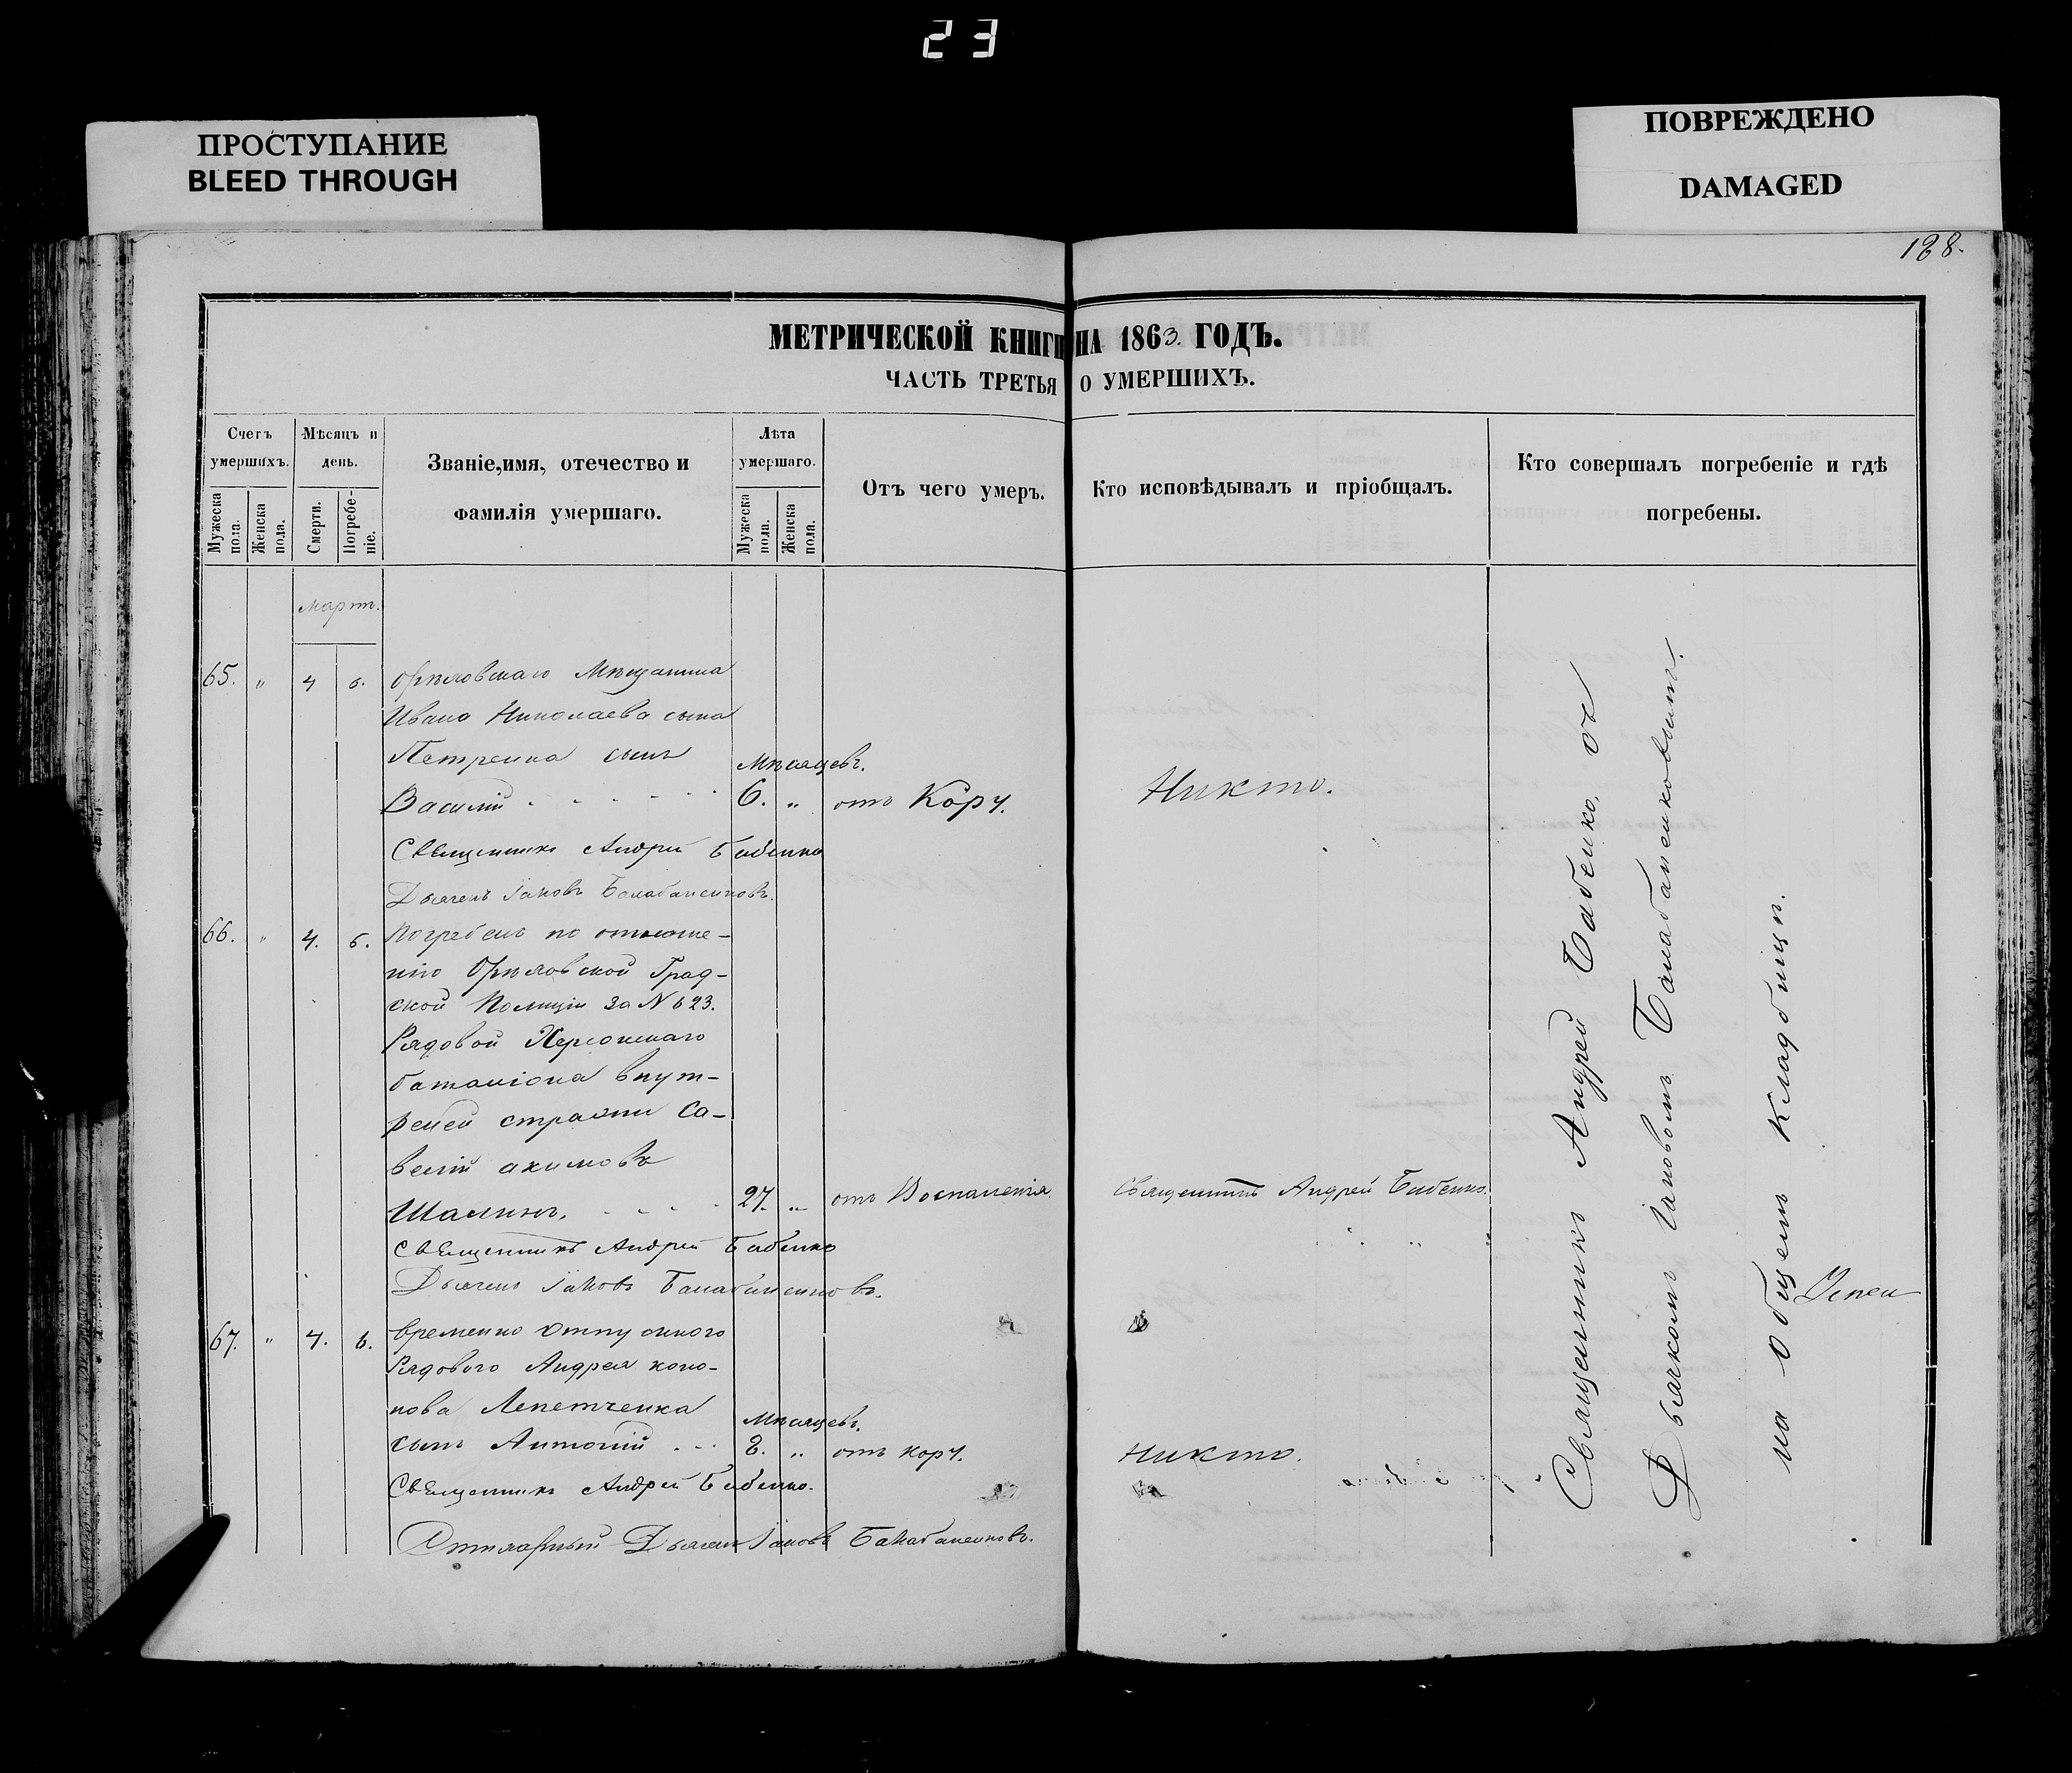 23
ПРОСТУПАНИЕ
BLEED THROUGH
ПОВРЕЖДЕНО
DAMAGED
188.
МЕТРИЧЕСКОЙ КНИГИ НА 1863. ГОДЪ.
ЧАСТЬ ТРЕТЬЯ О УМЕРШИХЪ.
Счетъ умершихъ.
Мужеска пола.
Женска пола.
Мѣсяцъ и день.
Смерти.
Погребеніе.
Званіе, имя, отечество и
фамилія умершаго.
Лѣта умершаго.
Мужеска пола.
Женска пола.
Отъ чего умеръ.
Кто исповѣдывалъ и пріобщалъ.
Кто совершалъ погребеніе и гдѣ
погребены.
Мартъ.
65. " 4 6. Орѣховскаго Мѣщанина
Ивана Николаева сына
Петренка сынъ Мѣсяцевъ.
Василій 6. " отъ Кору. Никто.
Священникъ Андрей Бабенко
Дьячекъ Іаковъ Балабаненковъ.
66. " 4. 6. Погребенъ по отноше-
нію Орѣховской Град-
ской Полиціи за N 623.
Рядовой Херсонскаго
баталіона внут-
реней стражи Са-
велій акимовъ
Шалинъ. 27. " отъ Воспаленія. Священникъ Андрей Бабенко.
Священникъ Андрей Бабенко
Дьячекъ Іаковъ Балабаненковъ.
67. " 4. 6. временно отпускного
Рядового Андрея коно-
нова Лепетченка Мѣсяцевъ.
сынъ Антоній 8. " отъ кору. Никто.
Священникъ Андрей Бабенко.
Дьячекъ Іаковъ Балабаненковъ.
Священникъ Андрей Бабенко, съ
Дьячкомъ Іаковомъ Балабаненковымъ.
на Общемъ Кладбищѣ.